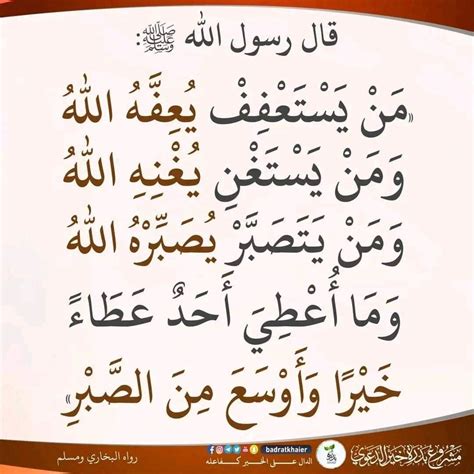 قال رسول الله ﷺ:
«مَنْ يَسْتَعْفِفْ يُعِفَّهُ اللهُ
وَمَنْ يَسْتَغْنِ يُغْنِهِ اللهُ
وَمَنْ يَتَصَبَّرْ يُصَبِّرْهُ اللهُ
وَمَا أُعْطِيَ أَحَدٌ عَطَاءً
خَيْرًا وَأَوْسَعَ مِنَ الصَّبْرِ»
مشروع بذرة خير الدعوي
badratkhaier
الدال على الخير كفاعله
رواه البخاري ومسلم